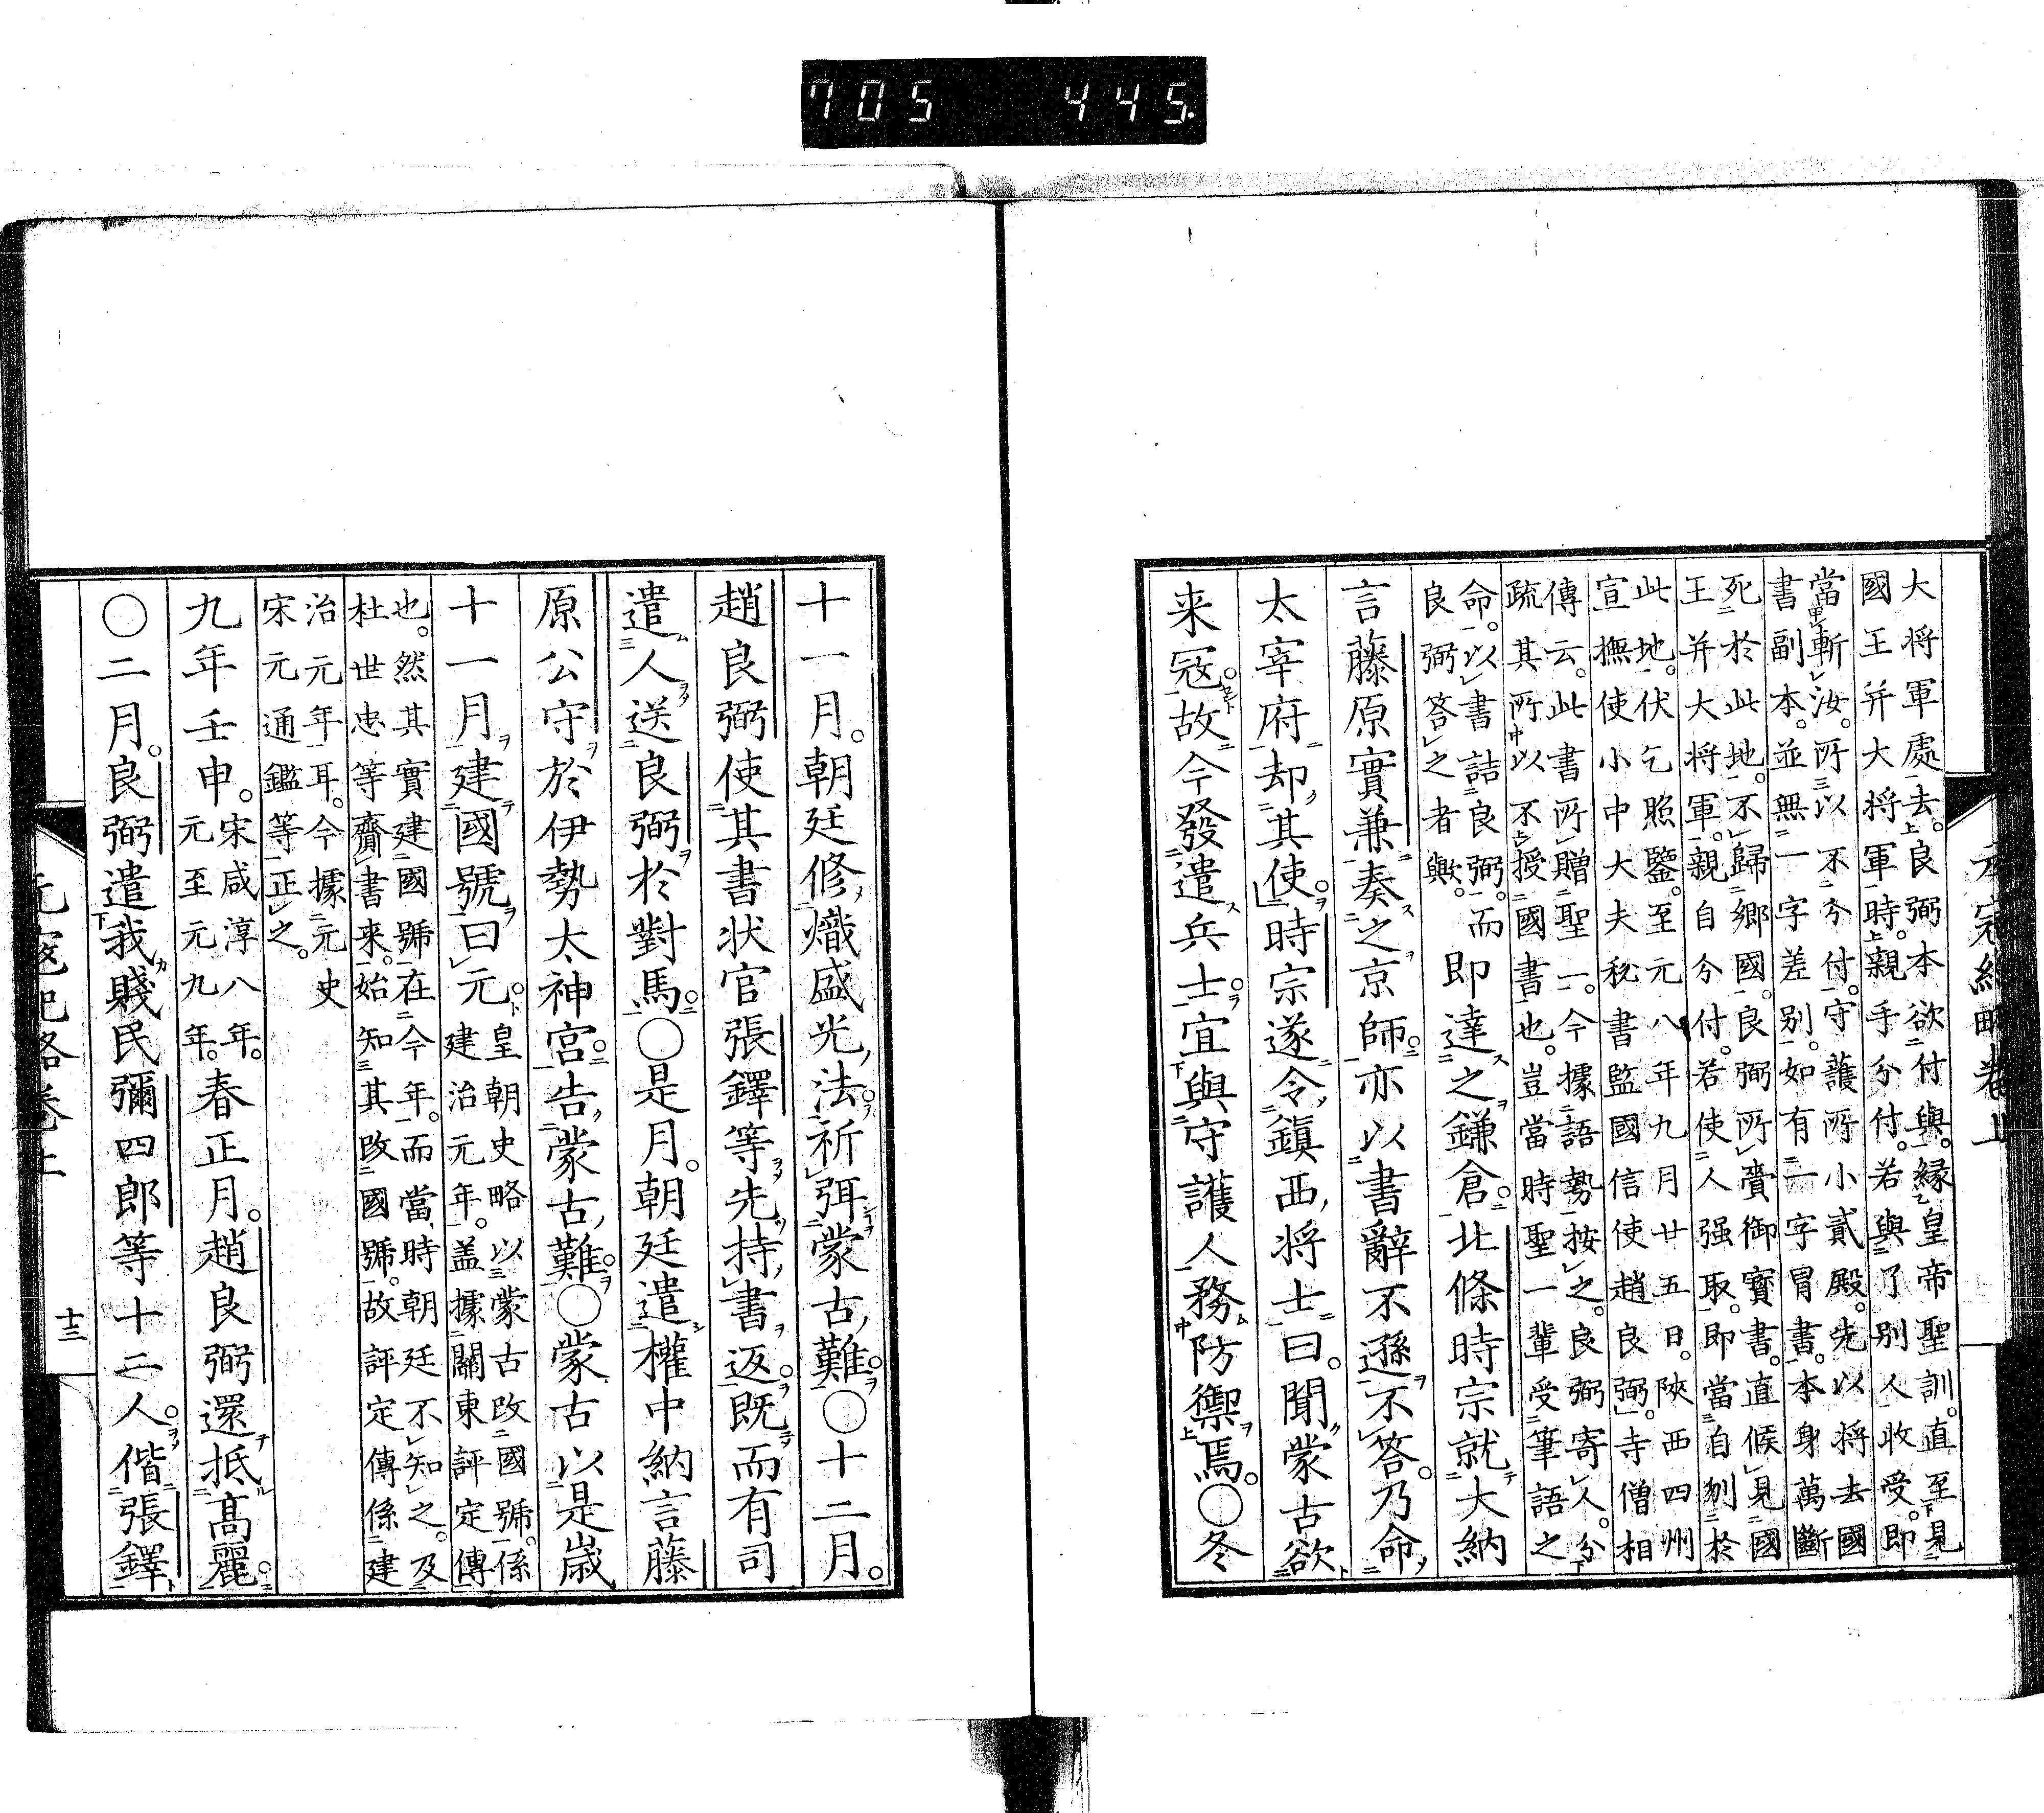 705 445.
大将軍處去。良弼本欲付與。縁皇帝聖訓。直至見
國王并大将軍時。親手分付。若與了別人收受。即
當斬汝。所以不分付。守護所小貳殿。先以将去國
書副本。並無一字差別。如有一字冒書。本身萬斷
死於此地。不歸郷國。良弼所賷御寶書。直候見國
王并大将軍。親自分付。若使人强取。即當自刎於
此地。伏乞照鑒。至元八年九月廿五日。陝西四州
宣撫使小中大夫秘書監國信使趙良弼。寺僧相
傳云。此書所贈聖一。今據語勢按之。良弼寄人。分
疏其所以不授國書也。豈當時聖一輩受筆語之
命。以書詰良弼。而
良弼答之者歟。
即達之鎌倉。北條時宗就大納
言藤原實兼奏之京師。亦以書辭不遜不答。乃命
太宰府却其使。時宗遂令鎭西将士曰。聞蒙古欲
来寇。故今發遣兵士。宜與守護人務防禦焉。〇冬
十一月。朝廷修熾盛光法祈弭蒙古難。〇十二月。
趙良弼使其書状官張鐸等先持書返。既而有司
遣人送良弼於對馬。〇是月。朝廷遣權中納言藤
原公守於伊勢太神宮告蒙古難。〇蒙古以是歳
十一月建國號曰元。
皇朝史略以蒙古改國號。係
建治元年。盖據關東評定傳
也。然其實建國號在今年。而當時朝廷不知之。及
杜世忠等齎書来。始知其改國號。故評定傳係建
治元年耳。今據元史
宋元通鑑等正之。
九年壬申。
宋咸淳八年。
元至元九年。
春正月。趙良弼還抵髙麗。
〇二月。良弼遣我賤民彌四郎等十二人。偕張鐸
元寇紀略卷上
十三